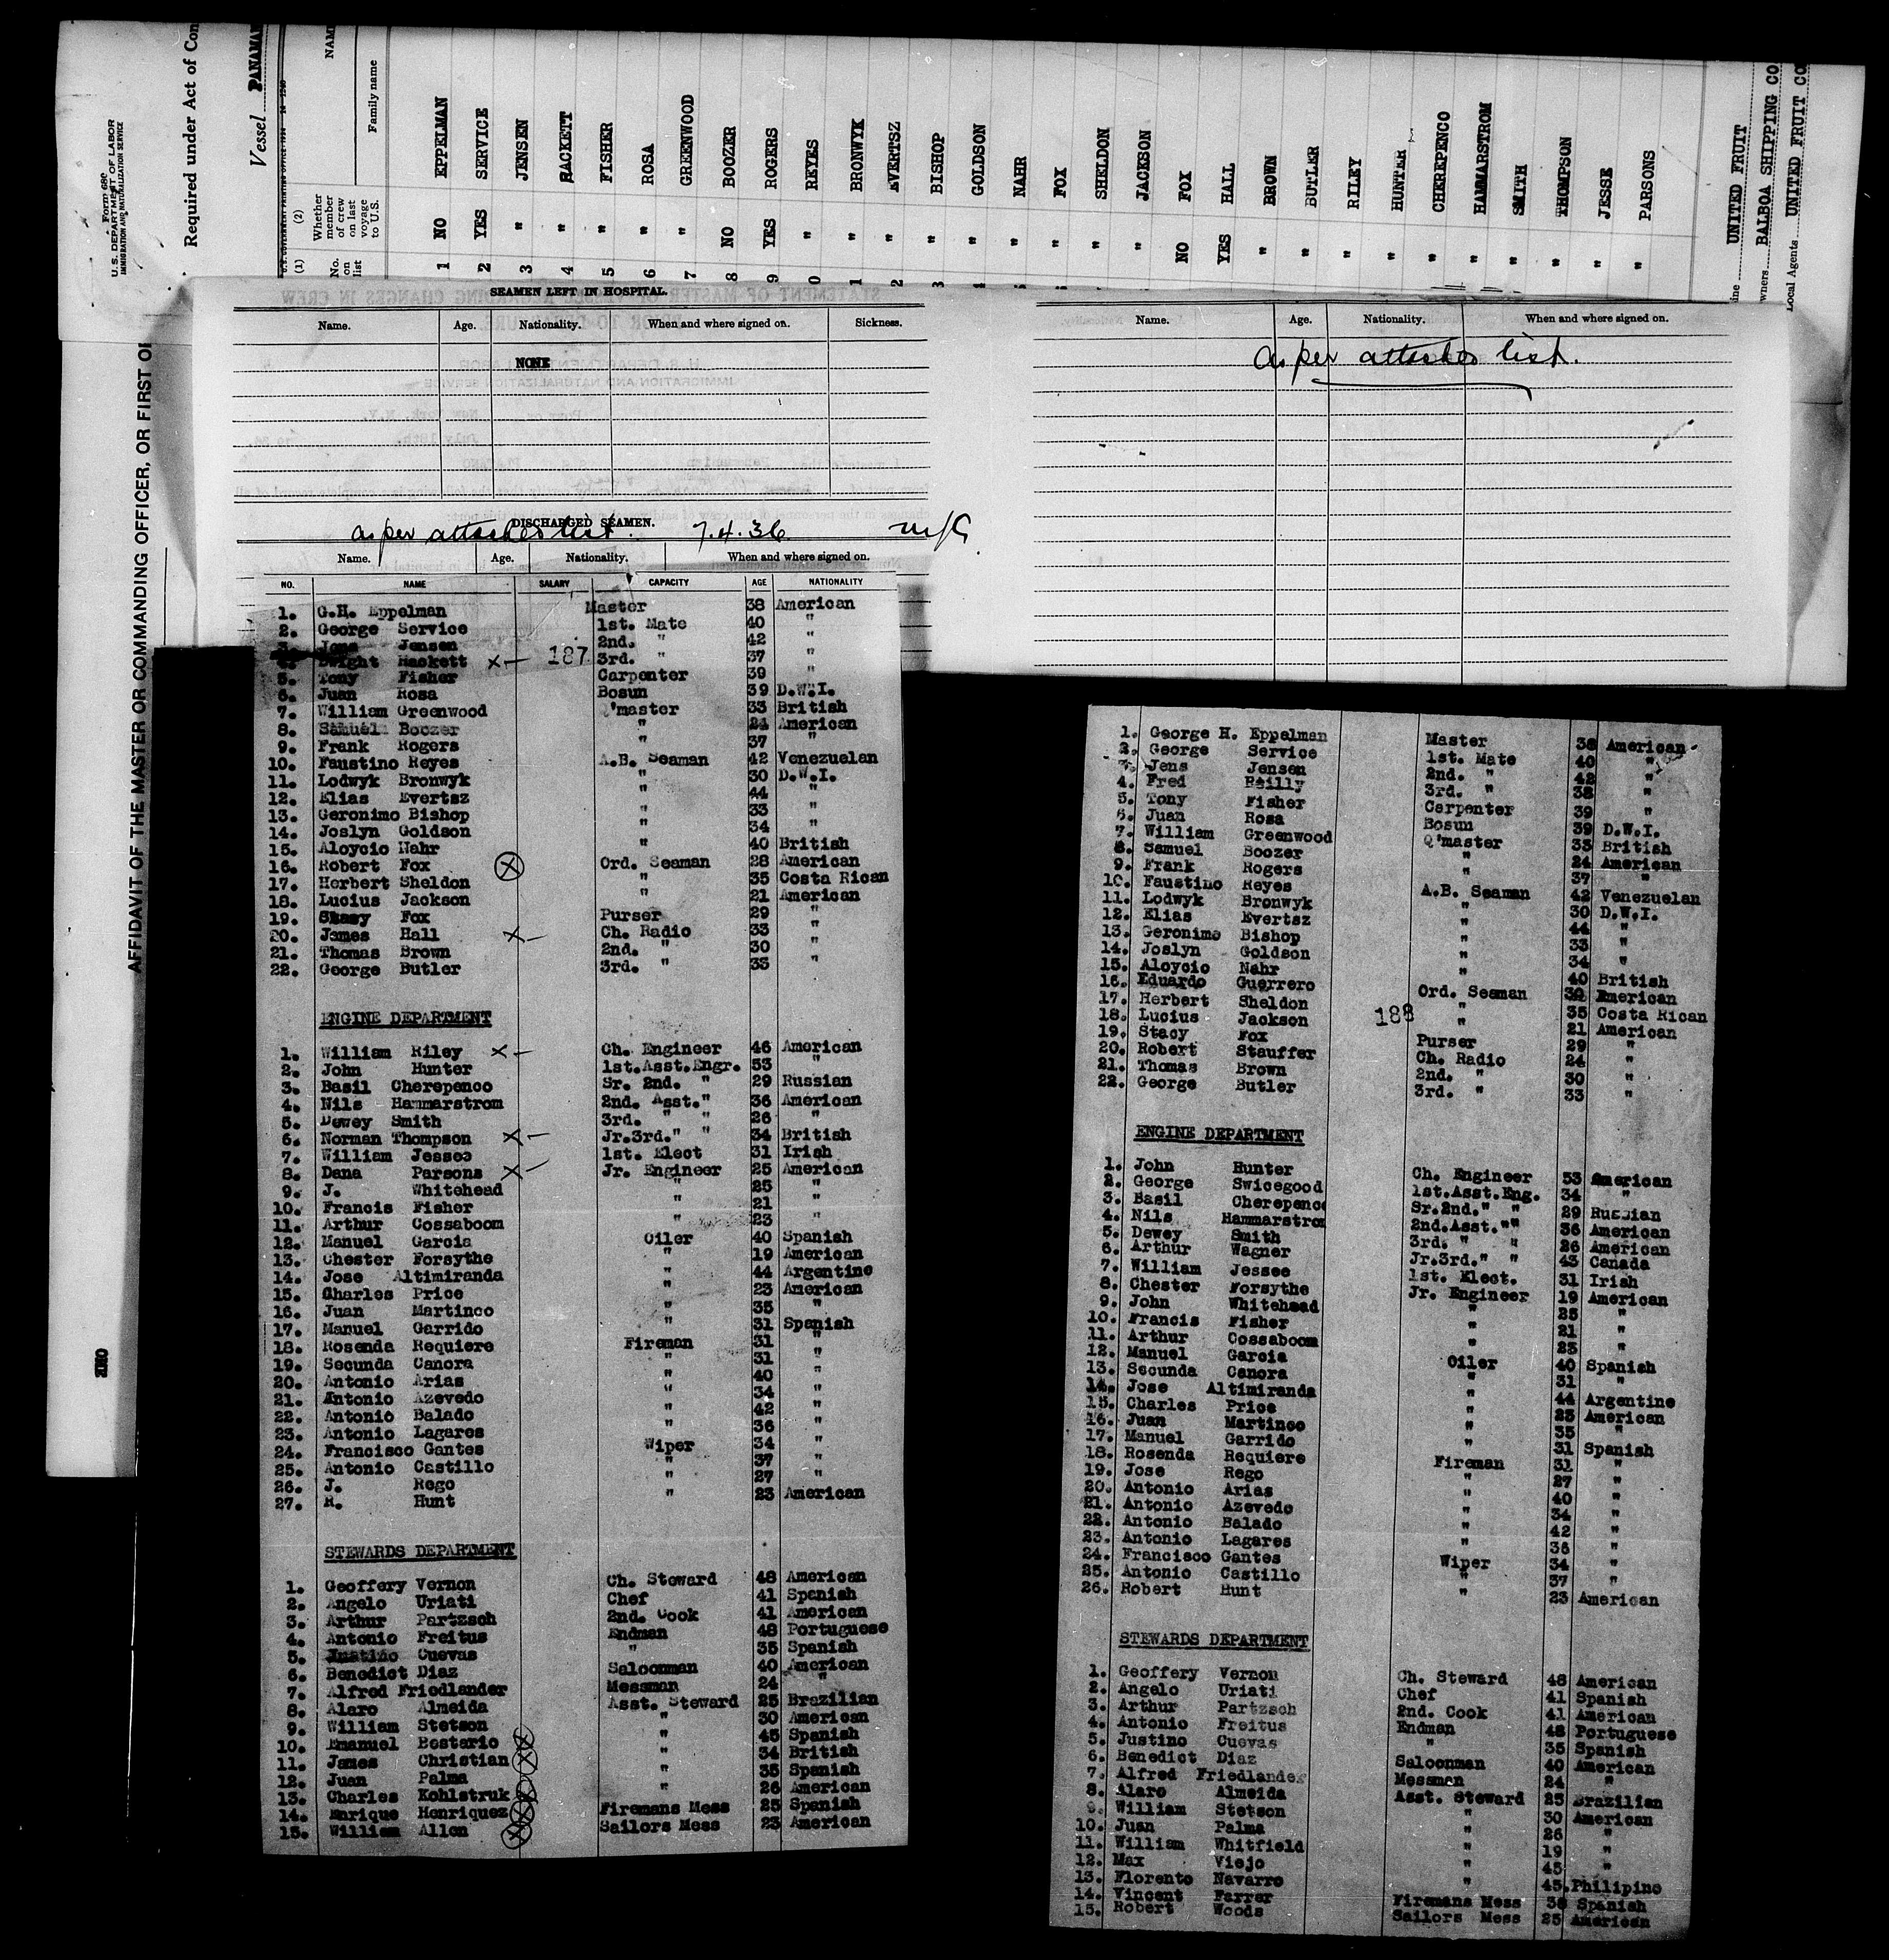 Form 680
U.S. DEPARTMENT OF LABOR
IMMIGRATION AND NATURALIZATION SERVICE
Required under Act of Con
Vessel PANAMA
(1) (2)
No. on list
Whether member of crew on last voyage to U.S.
NAM
Family name
1 NO EPPELMAN
2 YES SERVICE
3 " JENSEN
4 " HACKETT
5 " FISHER
6 " ROSA
7 " GREENWOOD
8 NO BOOZER
9 YES ROGERS
0 " REYES
1 " BRONWYK
2 " EVERTSZ
3 " BISHOP
" GOLDSON
" NAHR
" FOX
" SHELDON
" JACKSON
NO FOX
YES HALL
" BROWN
" BUTLER
" RILEY
" HUNTER
" CHEREPENCO
" HAMMARSTROM
" SMITH
" THOMPSON
" JESSE
" PARSONS
ine UNITED FRUIT
wners BALBOA SHIPPING CO
Local Agents UNITED FRUIT CO
AFFIDAVIT OF THE MASTER OR COMMANDING OFFICER, OR FIRST OF
SEAMEN LEFT IN HOSPITAL.
Name. Age. Nationality. When and where signed on. Sickness.
NONE
DISCHARGED SEAMEN.
as per attached list. 7.4.36
Name. Age. Nationality. When and where signed on.
Name. Age. Nationality. When and where signed on.
as per attached list.
NO. NAME SALARY CAPACITY AGE NATIONALITY
1. G.H. Eppelman Master 38 American
2. George Service 1st. Mate 40 "
3. Jens Jensen 2nd. " 42 "
4. Dwight Hackett X- 187 3rd. " 37 "
5. Tony Fisher Carpenter 39 "
6. Juan Rosa Bosun 39 D.W.I.
7. William Greenwood Q'master 33 British
8. Samuel Boozer " 24 American
9. Frank Rogers " 37 "
10. Faustino Reyes A.B. Seaman 42 Venezuelan
11. Lodwyk Bronwyk " 30 D.W.I.
12. Elias Evertsz " 44 "
13. Geronimo Bishop " 33 "
14. Joslyn Goldson " 34 "
15. Aloycio Nahr " 40 British
16. Robert Fox X Ord. Seaman 28 American
17. Herbert Sheldon " 35 Costa Rican
18. Lucius Jackson " 21 American
19. Stacy Fox Purser 29 "
20. James Hall X- Ch. Radio 33 "
21. Thomas Brown 2nd. " 30 "
22. George Butler 3rd. " 33 "
ENGINE DEPARTMENT
1. William Riley X- Ch. Engineer 46 American
2. John Hunter 1st.Asst.Engr. 53 "
3. Basil Cherepenco Sr. 2nd. " 29 Russian
4. Nils Hammarstrom 2nd. Asst." 36 American
5. Dewey Smith 3rd. " " 26 "
6. Norman Thompson X- Jr.3rd." " 34 British
7. William Jessee 1st. Elect 31 Irish
8. Dana Parsons X- Jr. Engineer 25 American
9. J. Whitehead " 25 "
10. Francis Fisher " 21 "
11. Arthur Cossaboom " 23 "
12. Manuel Garcia Oiler 40 Spanish
13. Chester Forsythe " 19 American
14. Jose Altimiranda " 44 Argentine
15. Charles Price " 23 American
16. Juan Martinco " 35 "
17. Manuel Garrido " 31 Spanish
18. Rosenda Requiere Fireman 31 "
19. Secunda Canora " 31 "
20. Antonio Arias " 40 "
21. Antonio Azevedo " 34 "
22. Antonio Balado " 42 "
23. Antonio Lagares " 36 "
24. Francisco Gantes Wiper 34 "
25. Antonio Castillo " 37 "
26. J. Rego " 27 "
27. R. Hunt " 23 American
STEWARDS DEPARTMENT
1. Geoffery Vernon Ch. Steward 48 American
2. Angelo Uriati Chef 41 Spanish
3. Arthur Partzsch 2nd. Cook 41 American
4. Antonio Freitus Endman 48 Portuguese
5. Justino Cuevas " 35 Spanish
6. Benedict Diaz Saloonman 40 American
7. Alfred Friedlander Messman 24 "
8. Alaro Almeida Asst. Steward 25 Brazilian
9. William Stetson " 30 American
10. Emanuel Bestario X " 45 Spanish
11. James Christian X " 34 British
12. Juan Palma " 35 Spanish
13. Charles Kohlstruk X " 26 American
14. Enrique Henriquez X Firemans Mess 25 Spanish
15. William Allen X Sailors Mess 23 American
1. George H. Eppelman Master 38 American
2. George Service 1st. Mate 40 "
3. Jens Jensen 2nd. " 42 "
4. Fred Reilly 3rd. " 38 "
5. Tony Fisher Carpenter 39 "
6. Juan Rosa Bosun 39 D.W.I.
7. William Greenwood Q'master 33 British
8. Samuel Boozer " 24 American
9. Frank Rogers " 37 "
10. Faustino Reyes A.B. Seaman 42 Venezuelan
11. Lodwyk Bronwyk " 30 D.W.I.
12. Elias Evertsz " 44 "
13. Geronimo Bishop " 33 "
14. Joslyn Goldson " 34 "
15. Aloycio Nahr " 40 British
16. Eduardo Guerrero Ord. Seaman 30 American
17. Herbert Sheldon " 35 Costa Rican
18. Lucius Jackson 188 " 21 American
19. Stacy Fox Purser 29 "
20. Robert Stauffer Ch. Radio 24 "
21. Thomas Brown 2nd. " 30 "
22. George Butler 3rd. " 33 "
ENGINE DEPARTMENT
1. John Hunter Ch. Engineer 53 American
2. George Swicegood 1st.Asst.Eng. 34 "
3. Basil Cherepenc Sr.2nd." " 29 Russian
4. Nils Hammarstrom 2nd.Asst."" 36 American
5. Dewey Smith 3rd. " " 26 American
6. Arthur Wagner Jr.3rd." " 43 Canada
7. William Jessee 1st. Elect. 31 Irish
8. Chester Forsythe Jr. Engineer 19 American
9. John Whitehead " 25 "
10. Francis Fisher " 21 "
11. Arthur Cossaboom " 23 "
12. Manuel Garcia Oiler 40 Spanish
13. Secunda Canora " 31 "
14. Jose Altimiranda " 44 Argentine
15. Charles Price " 23 American
16. Juan Martinco " 35 "
17. Manuel Garrido " 31 Spanish
18. Rosenda Requiere Fireman 31 "
19. Jose Rego " 27 "
20. Antonio Arias " 40 "
21. Antonio Azevedo " 34 "
22. Antonio Balado " 42 "
23. Antonio Lagares " 36 "
24. Francisco Gantes Wiper 34 "
25. Antonio Castillo " 37 "
26. Robert Hunt " 23 American
STEWARDS DEPARTMENT
1. Geoffery Vernon Ch. Steward 48 American
2. Angelo Uriati Chef 41 Spanish
3. Arthur Partzsch 2nd. Cook 41 American
4. Antonio Freitus Endman 48 Portuguese
5. Justino Cuevas " 35 Spanish
6. Benedict Diaz Saloonman 40 American
7. Alfred Friedlander Messman 24 "
8. Alaro Almeida Asst. Steward 25 Brazilian
9. William Stetson " 30 American
10. Juan Palma " 26 "
11. William Whitfield " 19 "
12. Max Viejo " 45 "
13. Florento Navarro " 45. Philipino
14. Vincent Farrer Firemans Mess 38 Spanish
15. Robert Woods Sailors Mess 25 American